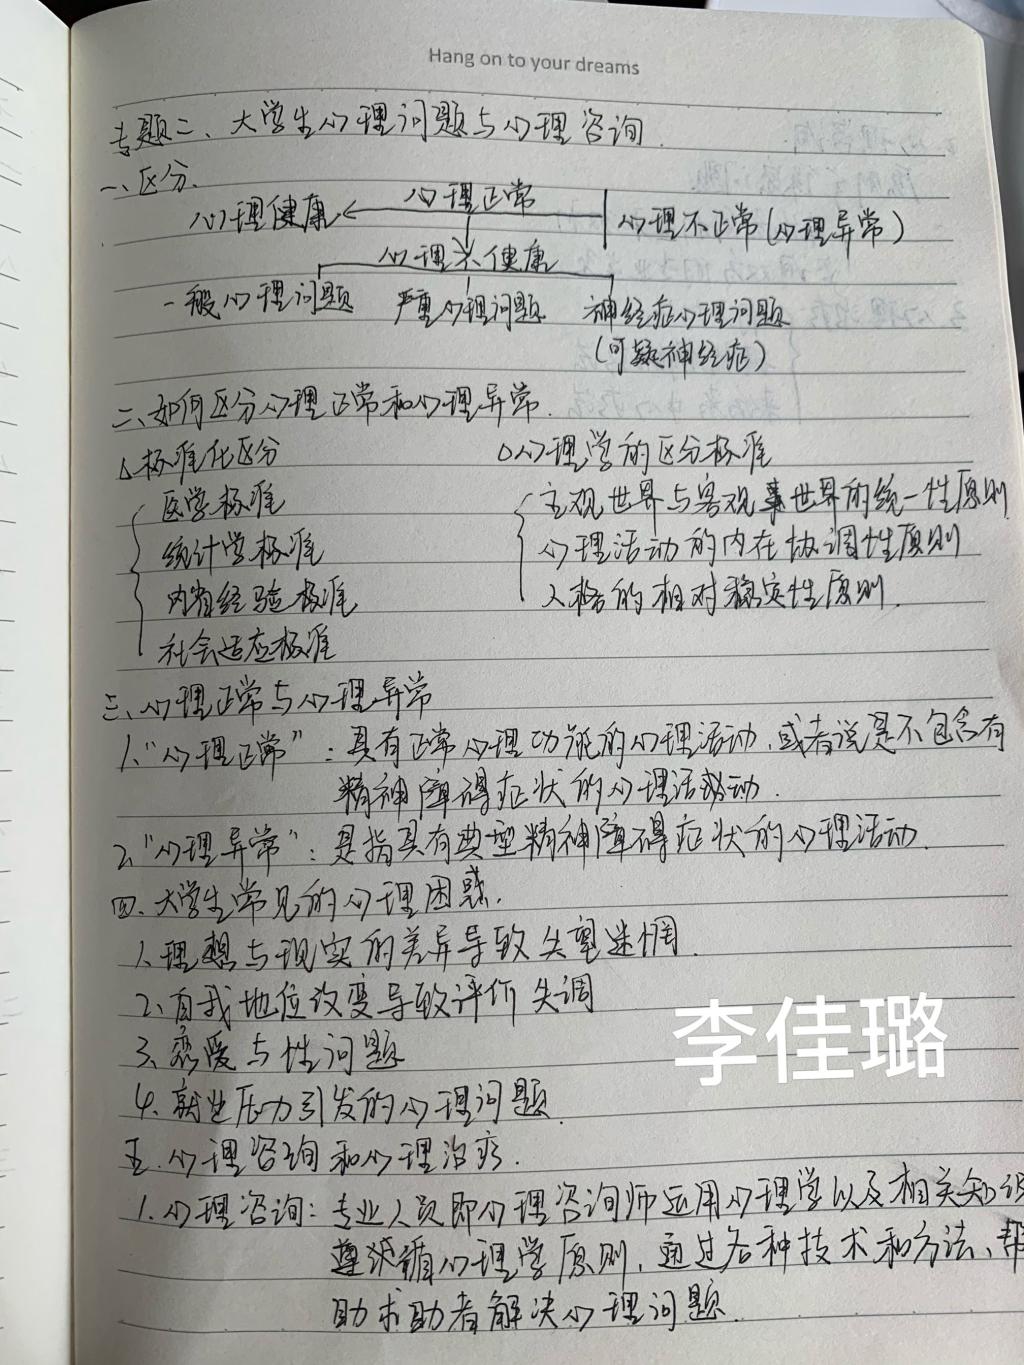 Hang on to your dreams
专题二、大学生心理问题与心理咨询.
一、区分.
心理健康 心理正常 心理不正常(心理异常)
心理不健康
一般心理问题 严重心理问题 神经症心理问题
(可疑神经症)
二、如何区分心理正常和心理异常.
标准化区分 心理学的区分标准
医学标准 主观世界与客观世界的统一性原则
统计学标准 心理活动的内在协调性原则
内省经验标准 人格的相对稳定性原则.
社会适应标准
三、心理正常与心理异常
1、“心理正常”:具有正常心理功能的心理活动,或者说是不包含有
精神障碍症状的心理活动.
2、“心理异常”:是指具有典型精神障碍症状的心理活动.
四、大学生常见的心理困惑.
1、理想与现实的差异导致失望迷惘.
2、自我地位改变导致评价失调
3、恋爱与性问题
李佳璐
4、就业压力引发的心理问题.
五.心理咨询和心理治疗.
1.心理咨询:专业人员即心理咨询师运用心理学以及相关知识
遵循心理学原则,通过各种技术和方法、帮
助求助者解决心理问题.